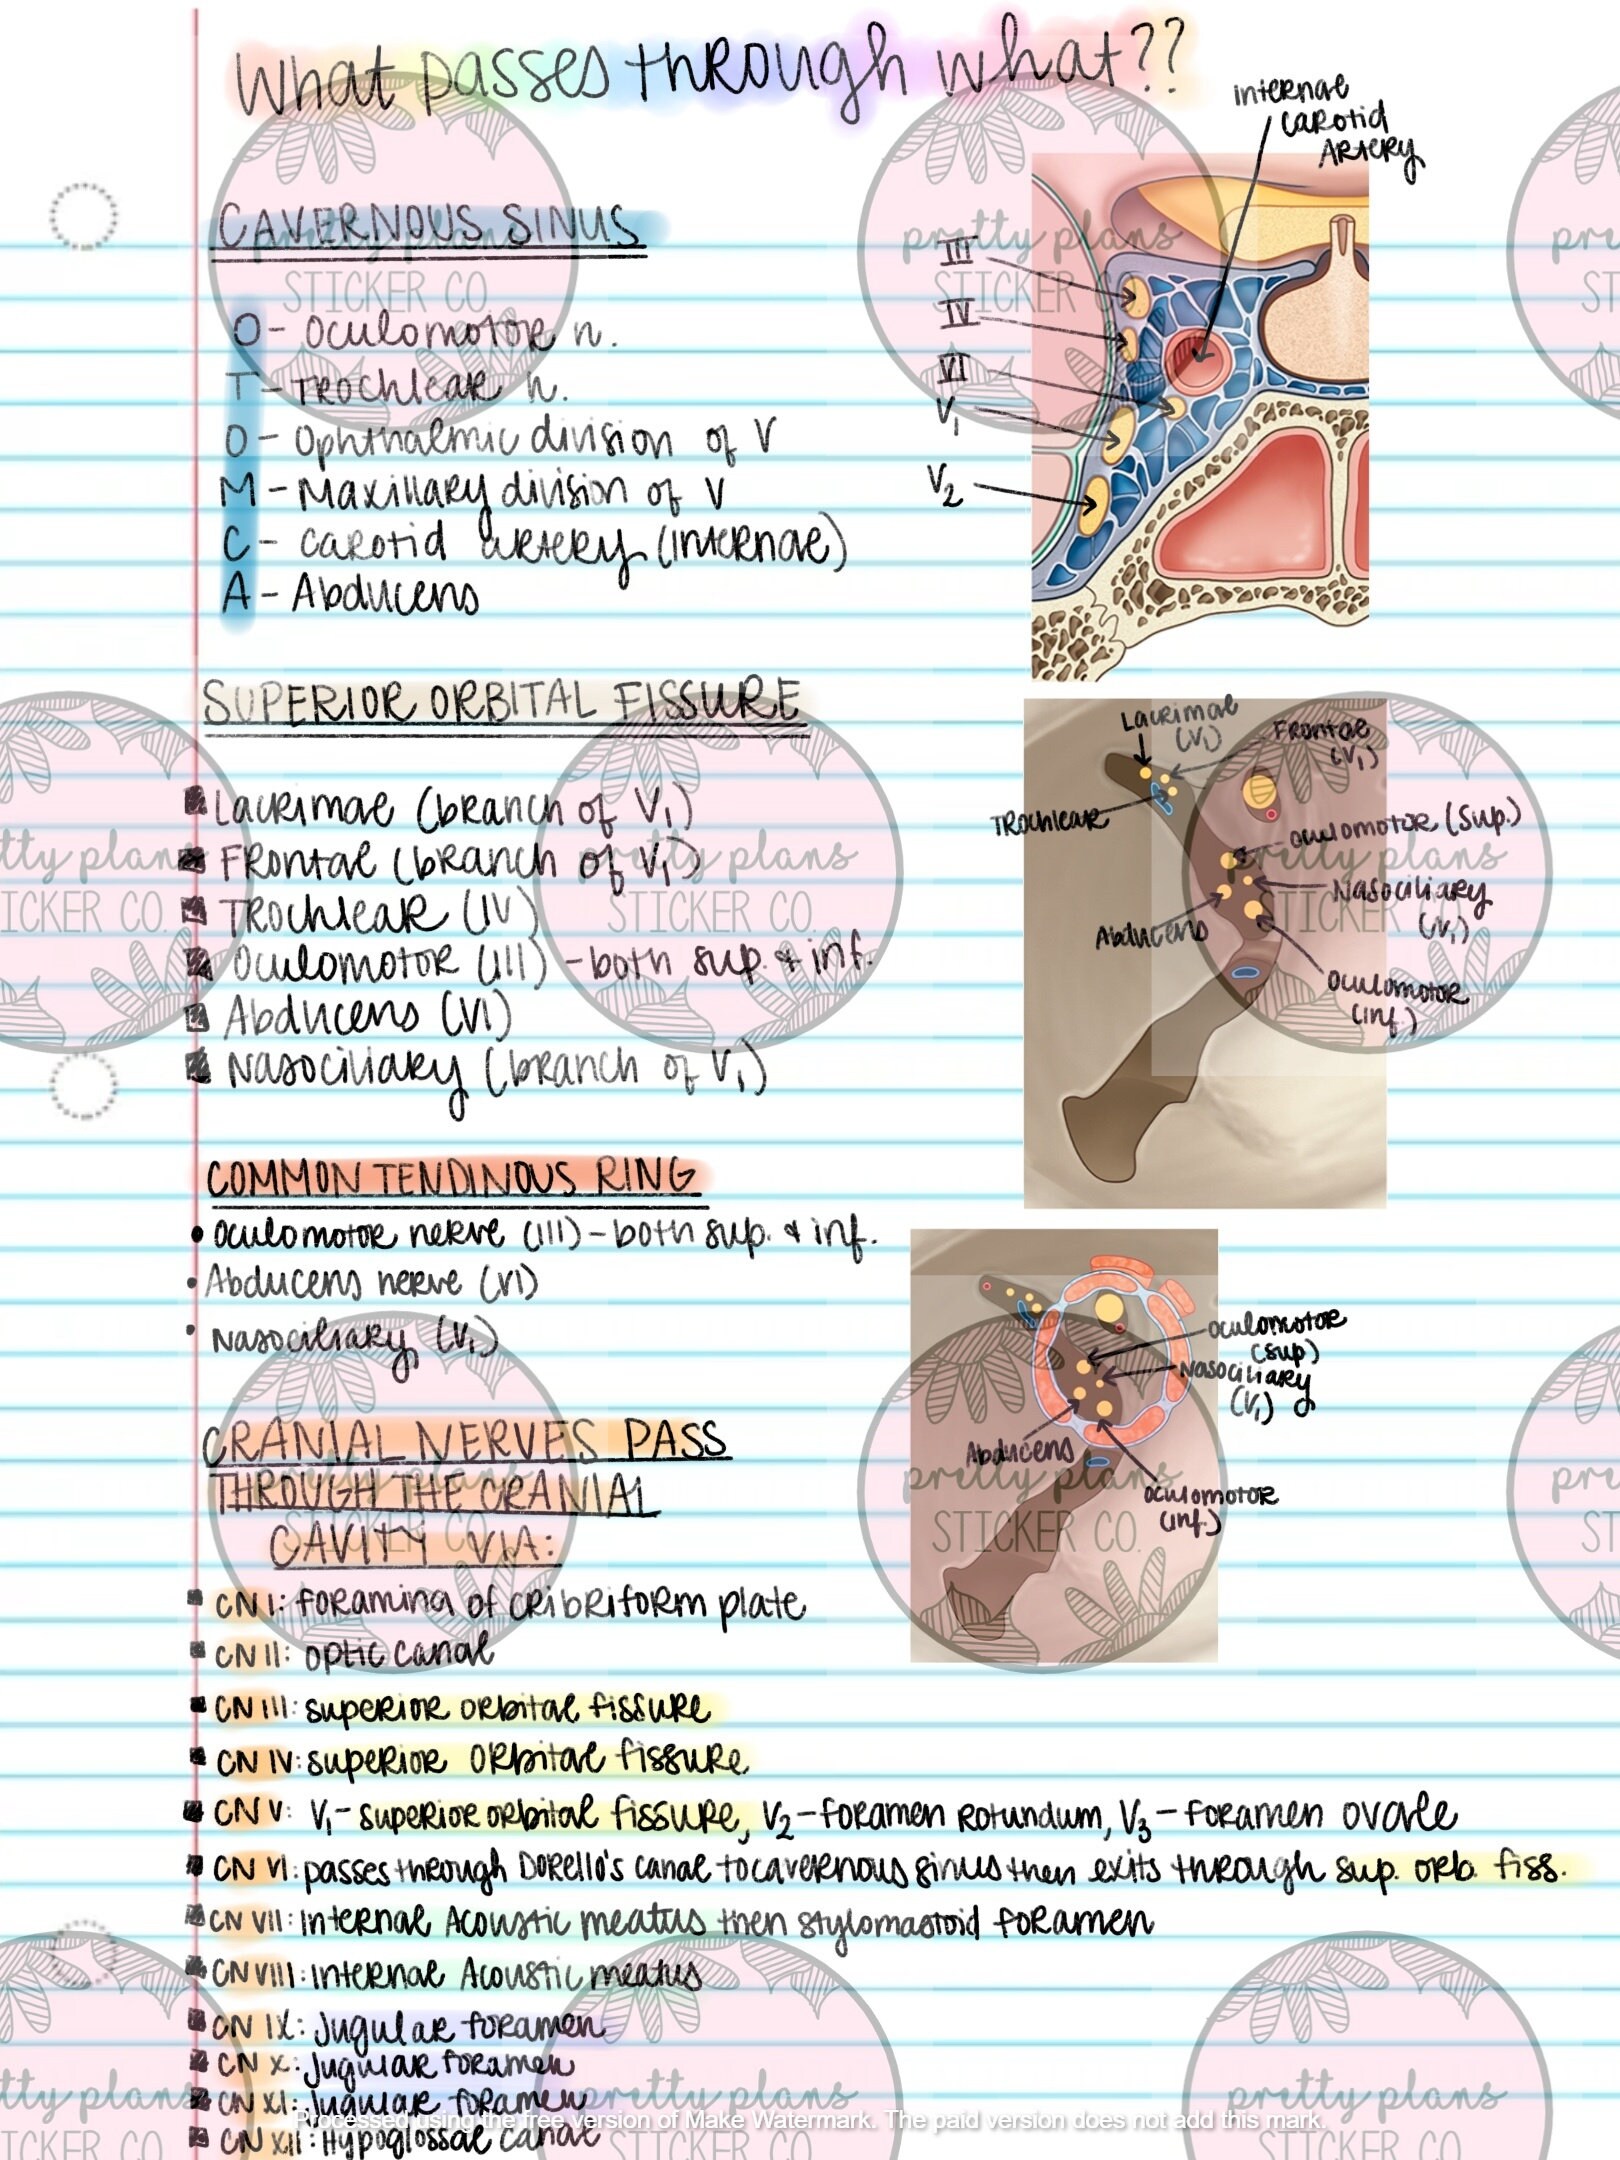 What passes through what??
CAVERNOUS SINUS
O - Oculomotor n.
T - Trochlear n.
O - Ophthalmic division of V
M - Maxillary division of V
C - Carotid artery (internal)
A - Abducens
internal
carotid
artery
III
IV
VI
V₁
V₂
SUPERIOR ORBITAL FISSURE
Lacrimal (branch of V₁)
Frontal (branch of V₁)
Trochlear (IV)
Oculomotor (III) - both sup. & inf.
Abducens (VI)
Nasociliary (branch of V₁)
Lacrimal
(V₁)
Frontal
(V₁)
Trochlear
oculomotor (sup.)
Nasociliary
(V₁)
Abducens
oculomotor
(inf.)
COMMON TENDINOUS RING
• oculomotor nerve (III) - both sup. & inf.
• Abducens nerve (VI)
• nasociliary (V₁)
oculomotor
(sup)
Nasociliary
(V₁)
Abducens
oculomotor
(inf.)
CRANIAL NERVES PASS
THROUGH THE CRANIAL
CAVITY VIA:
CN I: foramina of cribriform plate
CN II: optic canal
CN III: superior orbital fissure
CN IV: superior orbital fissure
CN V: V₁ - superior orbital fissure, V₂ - foramen rotundum, V₃ - foramen ovale
CN VI: passes through Dorello's canal to cavernous sinus then exits through sup. orb. fiss.
CN VII: internal Acoustic meatus then stylomastoid foramen
CN VIII: internal Acoustic meatus
CN IX: jugular foramen
CN X: jugular foramen
CN XI: jugular foramen
CN XII: Hypoglossal canal
pretty plans
STICKER CO.
Processed using the free version of Make Watermark. The paid version does not add this mark.